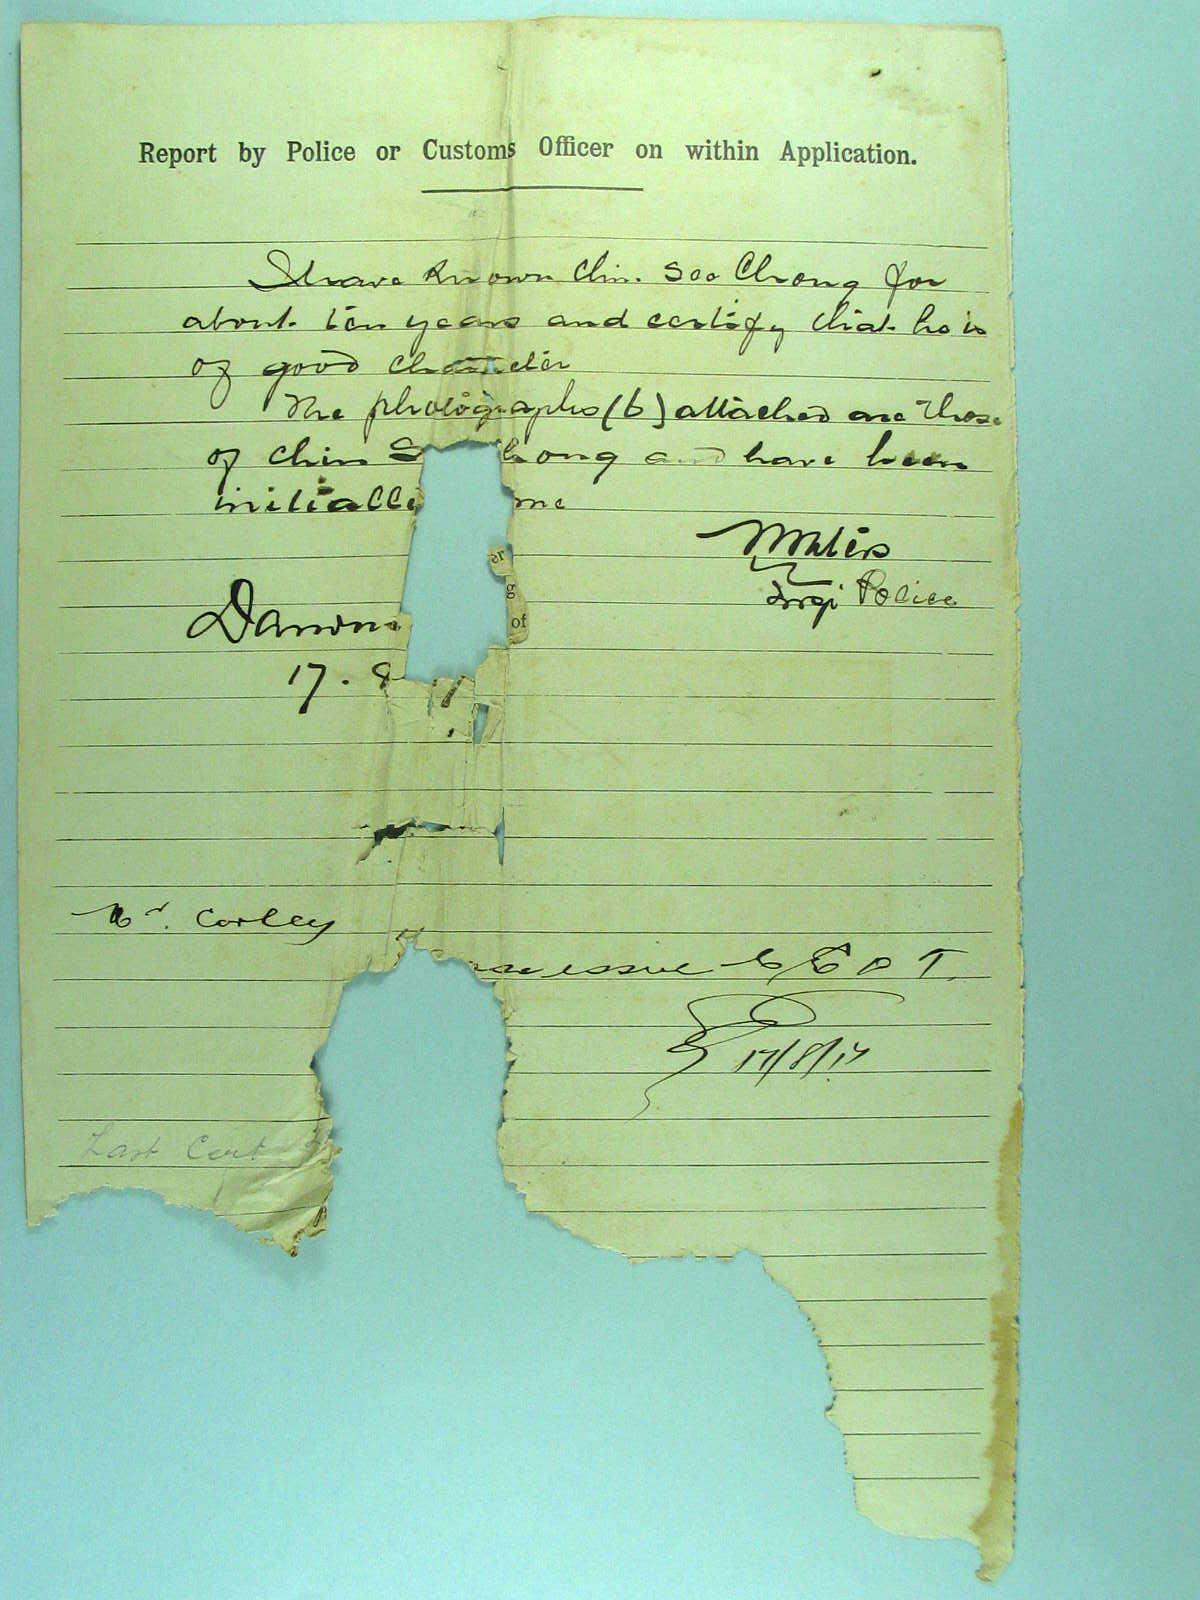 Report by Police or Customs Officer on within Application.
I have known Chin Soo Chong for
about ten years and certify that he is
of good character
The photographs (6) attached are those
of Chin S hong and have been
initialle me
er
g
Sergt Police
of
Darwin
17. 8
Mr. Corley
issue C E D T.
17/8/17
Last Cert